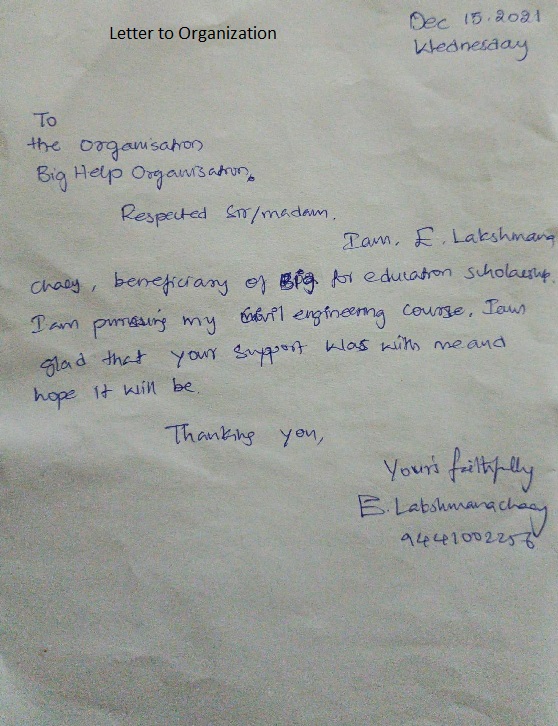 Letter to Organization
Dec 15.2021
Wednesday
To
the organisation
Big Help Organisation.
Respected Sir/madam.
I am. E. Lakshmana
chary, beneficiary of Big for education scholarship.
I am pursuing my civil engineering course, I am
glad that your support was with me and
hope it will be.
Thanking you,
Your's faithfully
E. Lakshmanachary
9441002256